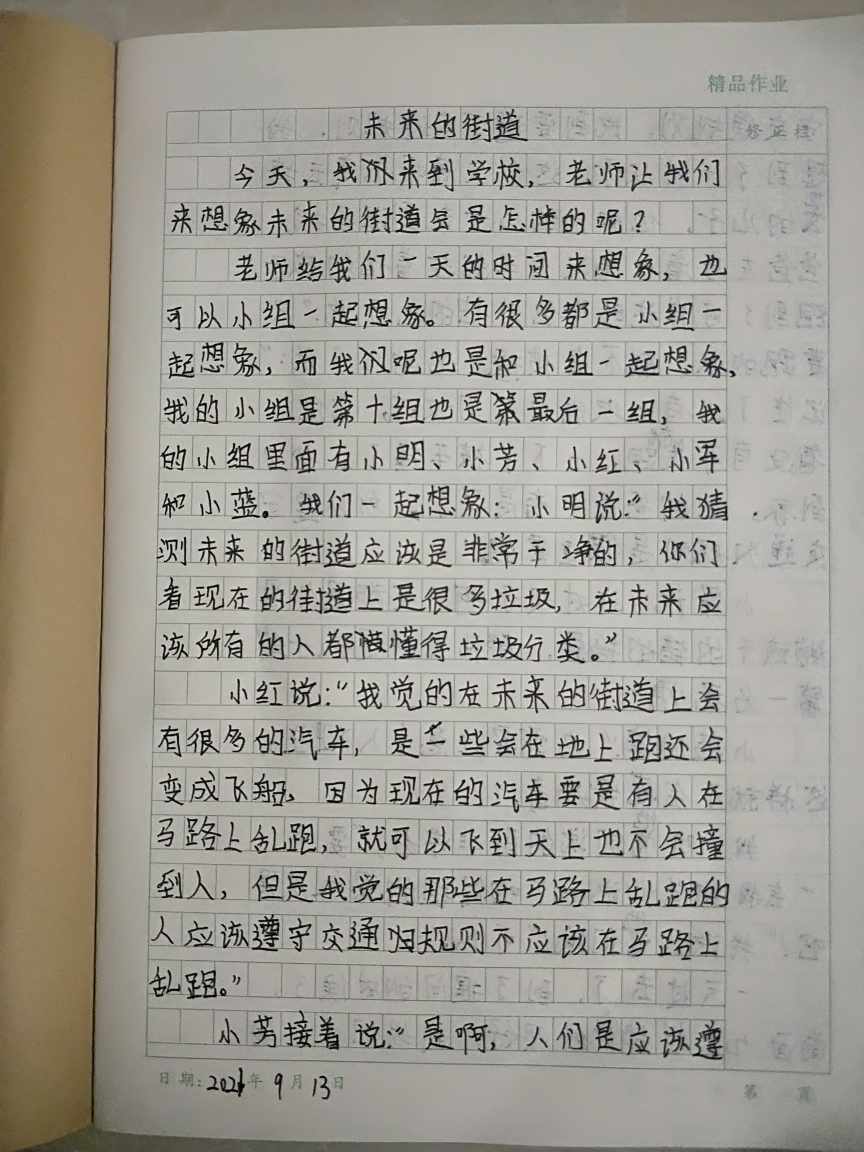 精品作业
未来的街道
修正栏
今天，我们来到学校，老师让我们
来想象未来的街道会是怎样的呢？
老师给我们一天的时间来想象，也
可以小组一起想象。有很多都是小组一
起想象，而我们呢也是和小组一起想象，
我的小组是第十组也是第最后一组，我
的小组里面有小明、小芳、小红、小军
和小蓝。我们一起想象：小明说：“我猜
测未来的街道应该是非常干净的，你们
看现在的街道上是很多垃圾，在未来应
该所有的人都懂得垃圾分类。”
小红说：“我觉的在未来的街道上会
有很多的汽车，是一些会在地上跑还会
变成飞船，因为现在的汽车要是有人在
马路上乱跑，就可以飞到天上也不会撞
到人，但是我觉的那些在马路上乱跑的
人应该遵守交通规则不应该在马路上
乱跑。”
小芳接着说：“是啊，人们是应该遵
日期：2021年9月13日
第 页